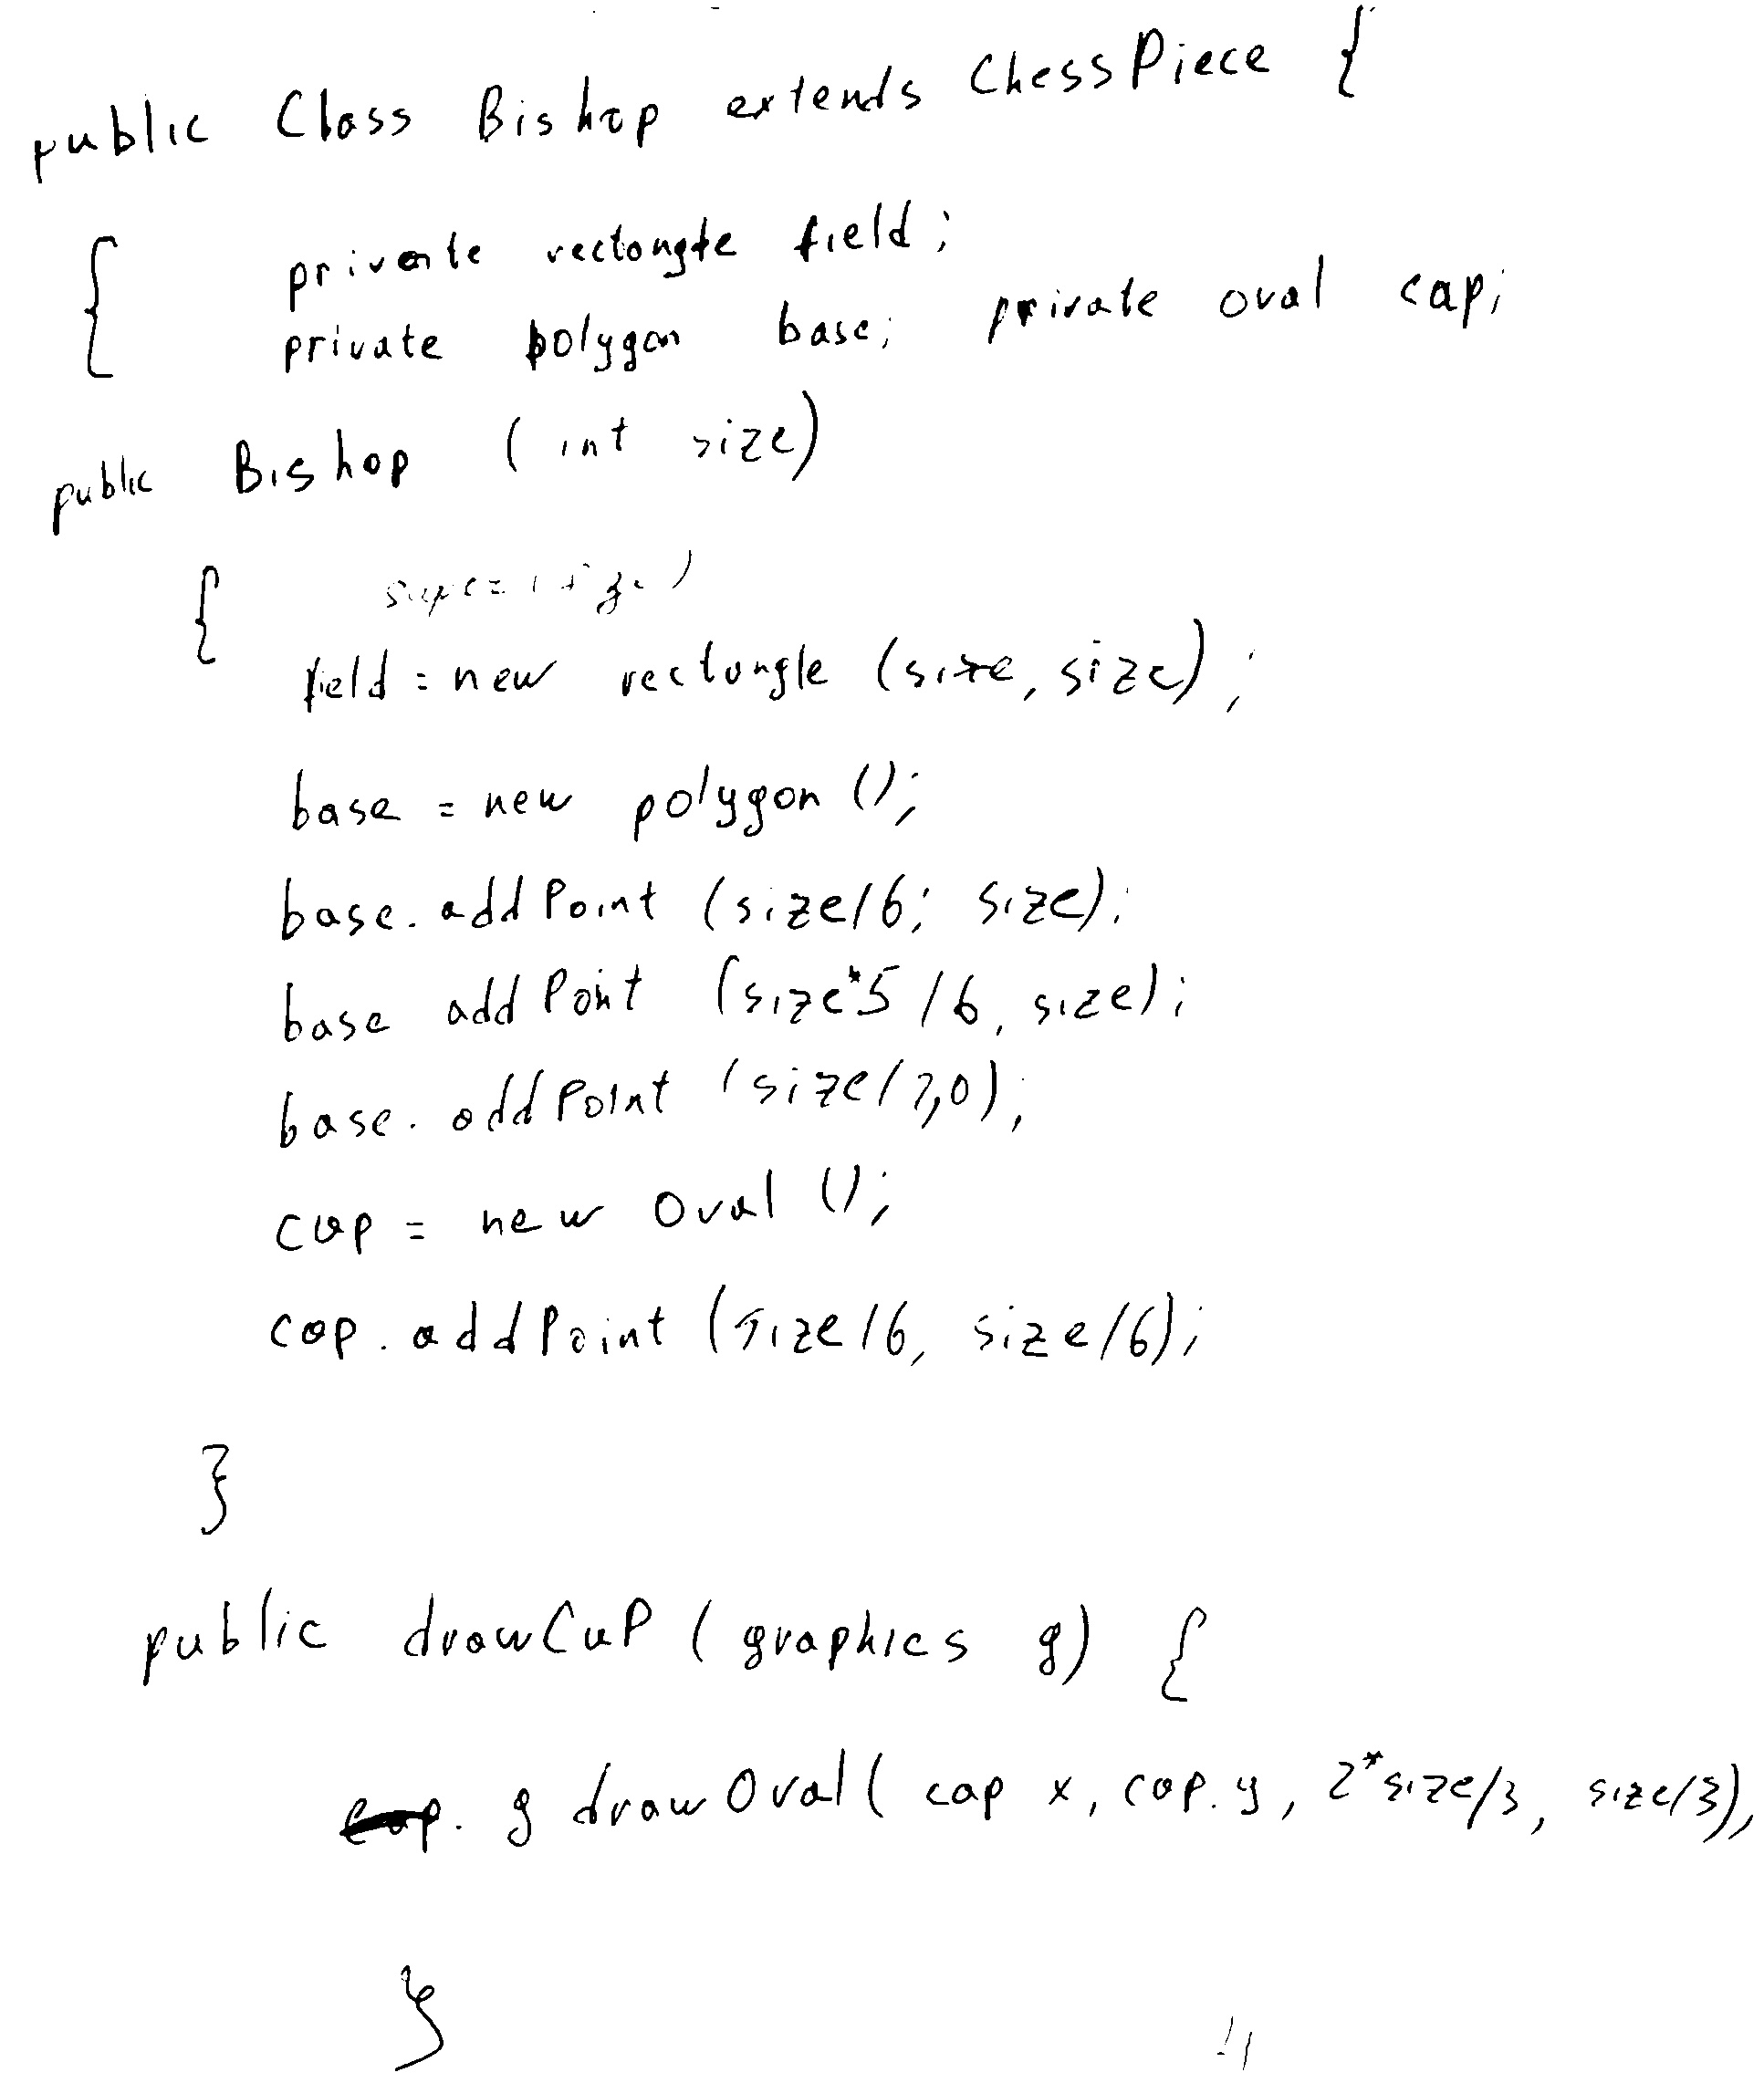 public Class Bishop extends ChessPiece {
{ private rectongle field;
private polygon base; private oval cap;
public Bishop ( int size)
{
field = new rectongle (size, size);
base = new polygon ();
base. addPoint (size/6; size);
base addPoint (size*5/6, size);
base. addPoint (size/2,0),
cap = new Oval ();
cap. addPoint (size/6, size/6);
}
public drawCaP ( graphics g) {
. g drawOval ( cap x, cap.y, 2*size/3, size/3),
}